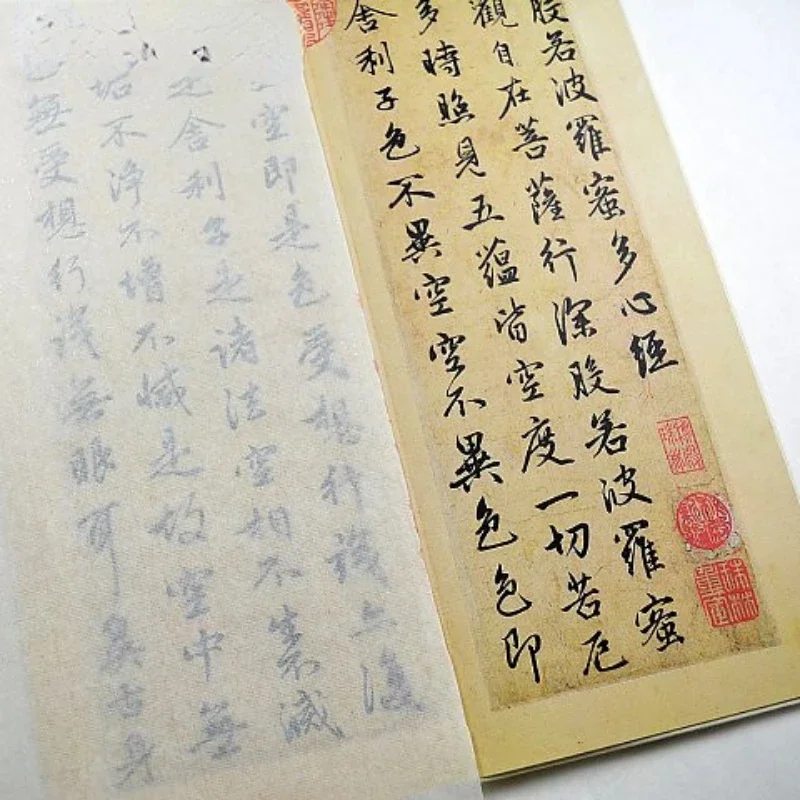 般若波羅蜜多心經
觀自在菩薩行深般若波羅蜜
多時照見五蘊皆空度一切苦厄
舍利子色不異空空不異色色即
空即是色受想行識亦復
是舍利子是諸法空相不生不滅
垢不淨不增不減是故空中無
色無受想行識無眼耳鼻舌身